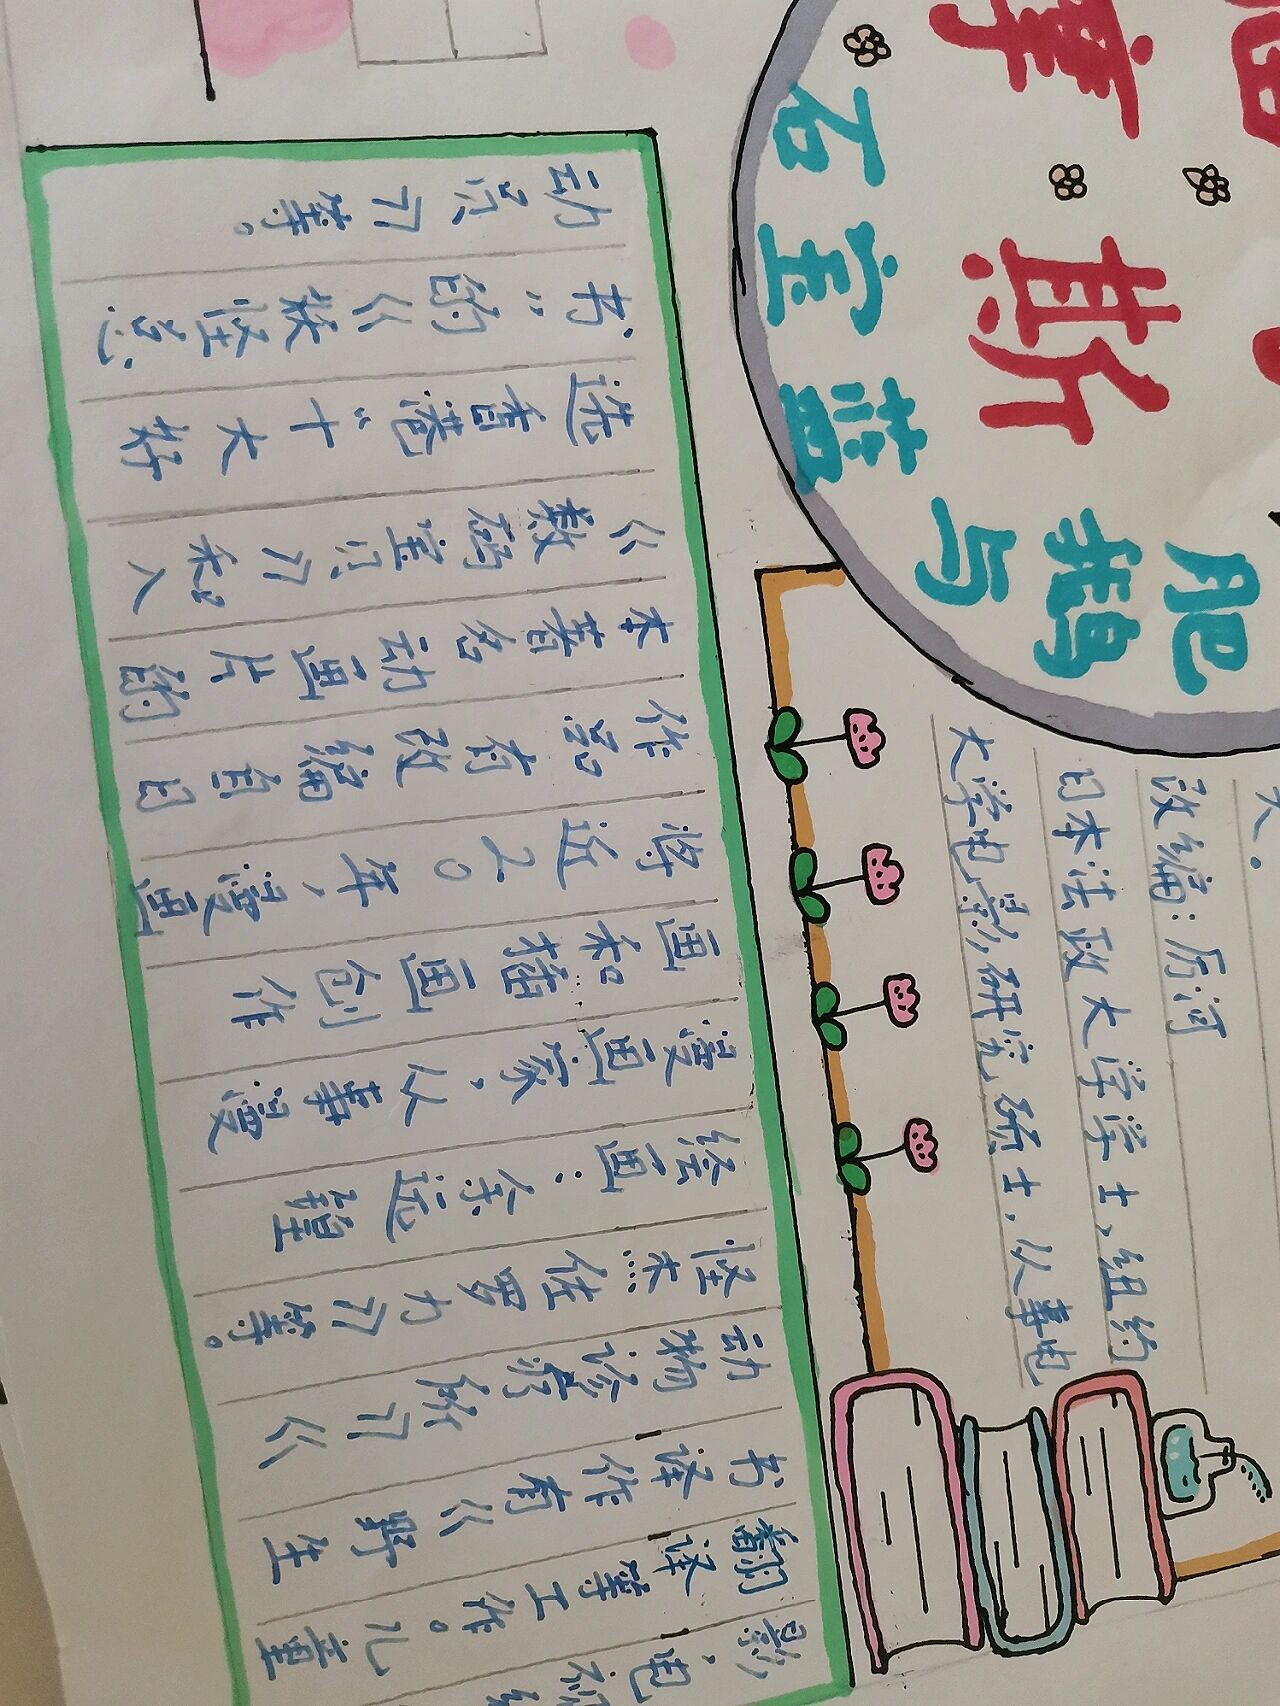 摩斯
肥鹅与蓝宝石
改编：厉河
日本法政大学学士，纽约
大学电影研究硕士，从事电
影、电视
翻译等工作。儿童
书译作有《野生
动物诊疗所》《
怪杰佐罗力》等。
绘画：余远锽
漫画家，从事漫
画和插画创作
将近20年，漫画
作品有改编自日
本著名动画片的
《数码宝贝》和入
选香港“十大好
书”的《妖怪总
动员》等。